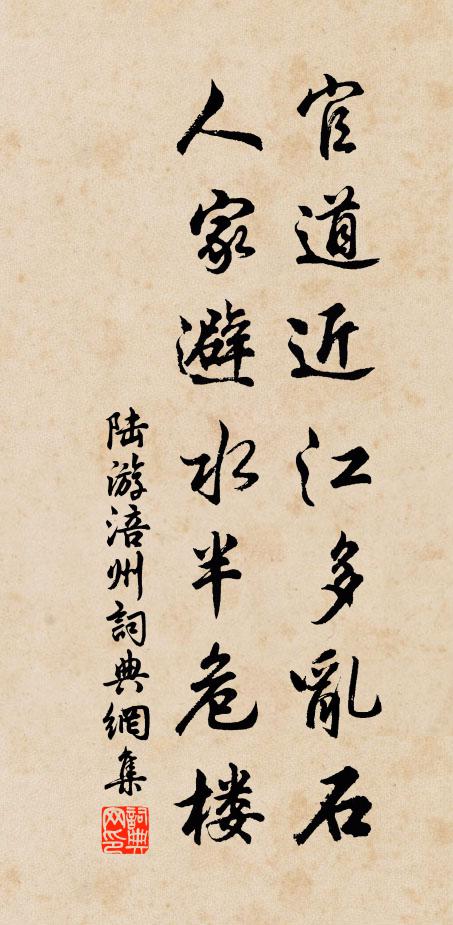 官道近江多亂石
人家避水半危楼
陆游涪州詞典網集
詞典网印